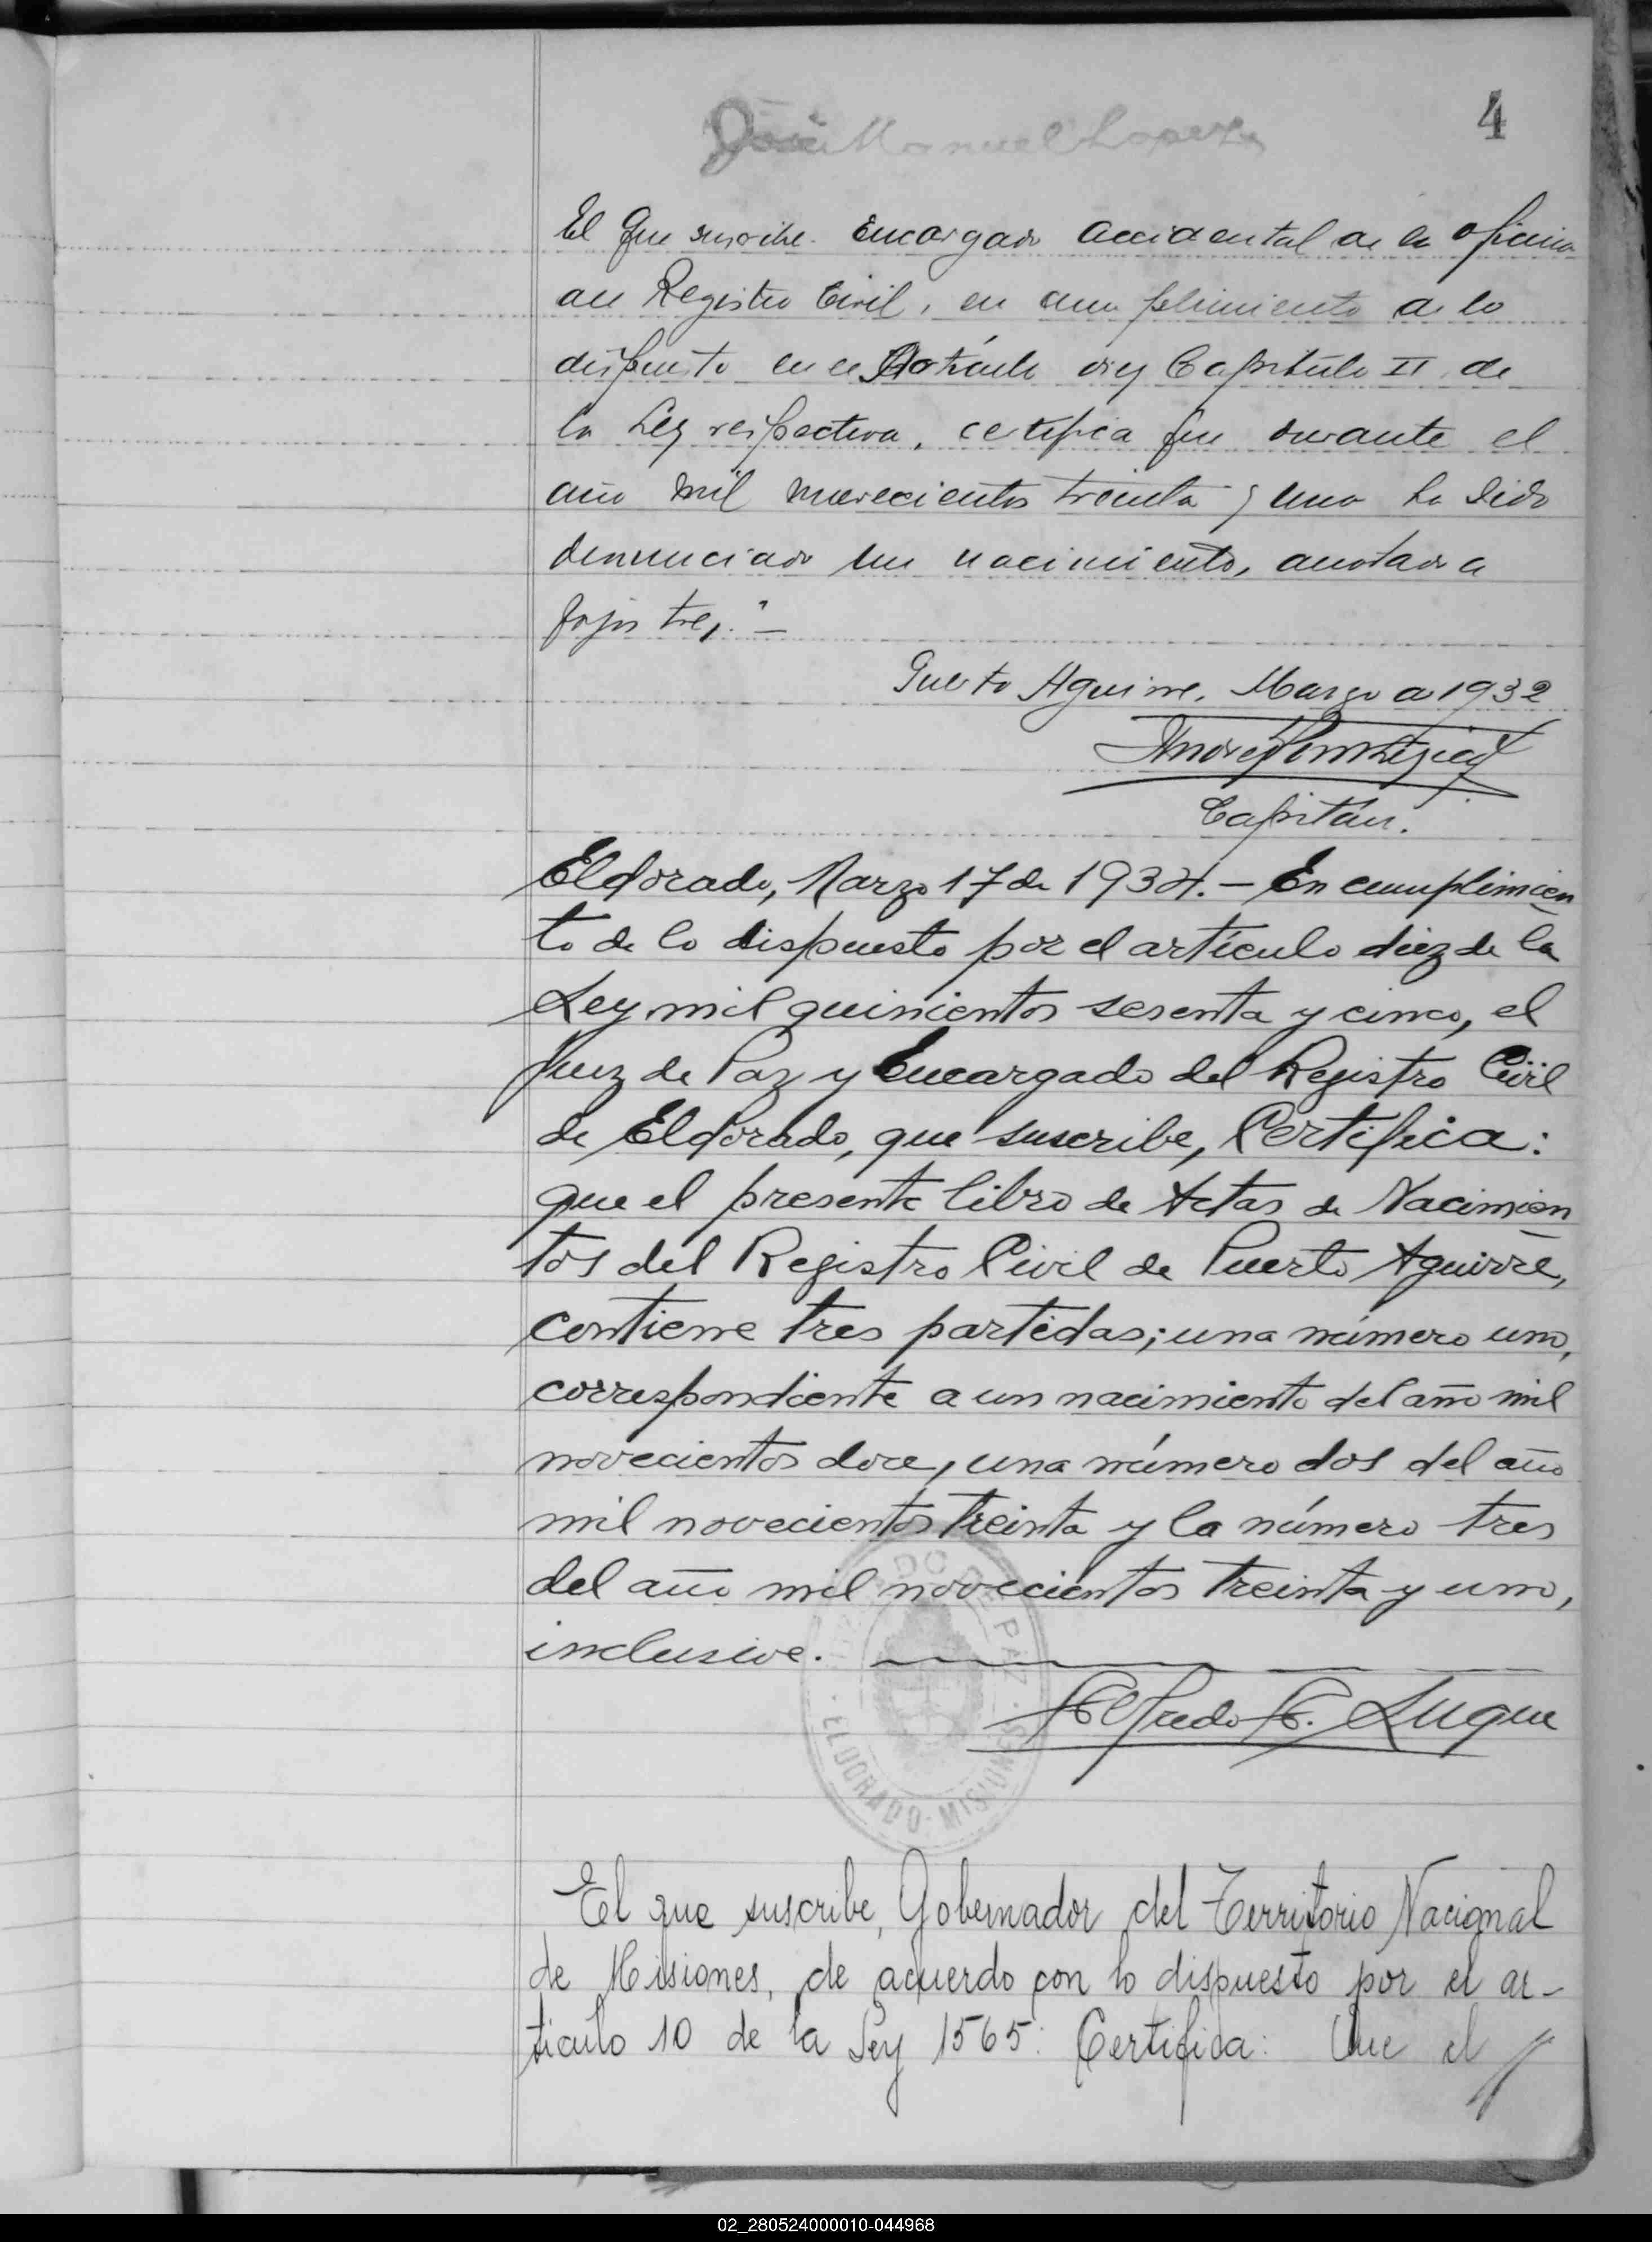 4
José Manuel Lopez
El que suscribe. Encargado accidental de la oficina
del Registro Civil, en cumplimiento a lo
dispuesto en el Artículo diez Capítulo II de
la Ley respectiva, certifica que durante el
año mil novecientos treinta y uno ha sido
denunciado un nacimiento, anotado a
fojas tres.—
Puerto Aguirre, Marzo de 1932
Capitán.
Eldorado, Marzo 17 de 1934.— En cumplimien
to de lo dispuesto por el artículo diez de la
Ley mil quinientos sesenta y cinco, el
Juez de Paz y Encargado del Registro Civil
de Eldorado, que suscribe, Certifica:
que el presente libro de Actas de Nacimien
tos del Registro Civil de Puerto Aguirre,
contiene tres partidas; una número uno,
correspondiente a un nacimiento del año mil
novecientos doce, una número dos del año
mil novecientos treinta y la número tres
del año mil novecientos treinta y uno,
inclusive.
JUZGADO DE PAZ
ELDORADO - MISIONES
Alfredo F. Luque
El que suscribe, Gobernador del Territorio Nacional
de Misiones, de acuerdo con lo dispuesto por el ar-
ticulo 10 de la Ley 1565: Certifica: Que el //
02_280524000010-044968